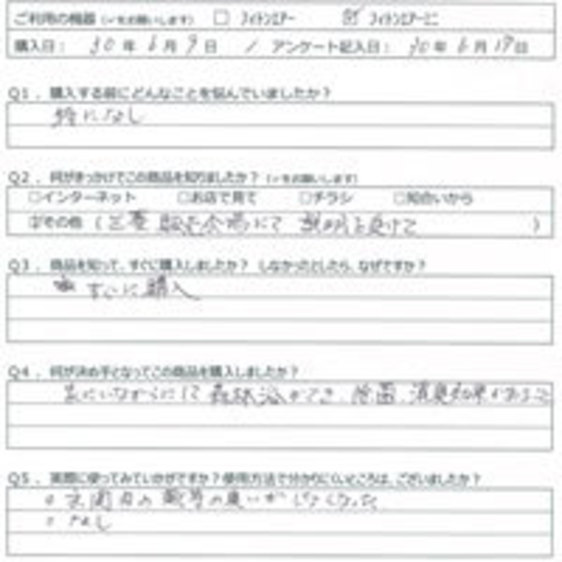 ご利用の機器（✓をお願いします） □ フィトンエアー ☑ フィトンエアーミニ
購入日： 30年 6月 9日 ／ アンケート記入日： 30年 6月 19日
Q1．購入する前にどんなことを悩んでいましたか？
特になし
Q2．何がきっかけでこの商品を知りましたか？（✓をお願いします）
□インターネット □お店で見て □チラシ □知合いから
☑その他（三菱 販売会場にて 説明を受けて ）
Q3．商品を知って、すぐに購入しましたか？ しなかったとしたら、なぜですか？
すぐに購入
Q4．何が決め手となってこの商品を購入しましたか？
家にいながらにして森林浴ができ、除菌、消臭効果があること
Q5．実際に使ってみていかがですか？使用方法で分かりにくいところは、ございましたか？
。玄関 の 等の臭いがしなくなった
。なし